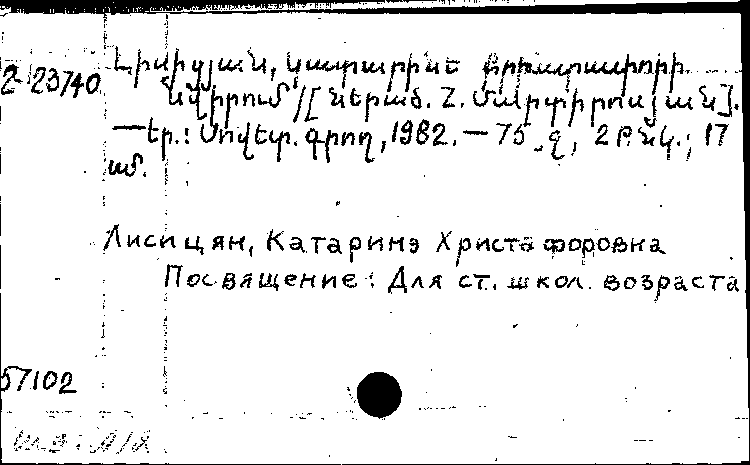 2-23740
Լիսիցյան, Կատարինե Քրիստափորի
Նվիրում / [Ներած. Հ. Մարտիրոսյան].
— Եր.: Սովետ. գրող, 1982. — 75 էջ, 2 թ. նկ.; 17
սմ.
Лисицян, Катаринэ Христафоровна
Посвящение: Для ст. школ. возраста
57102